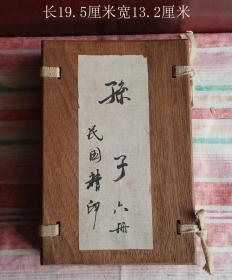 长19.5厘米宽13.2厘米
孫子六册
民国精印